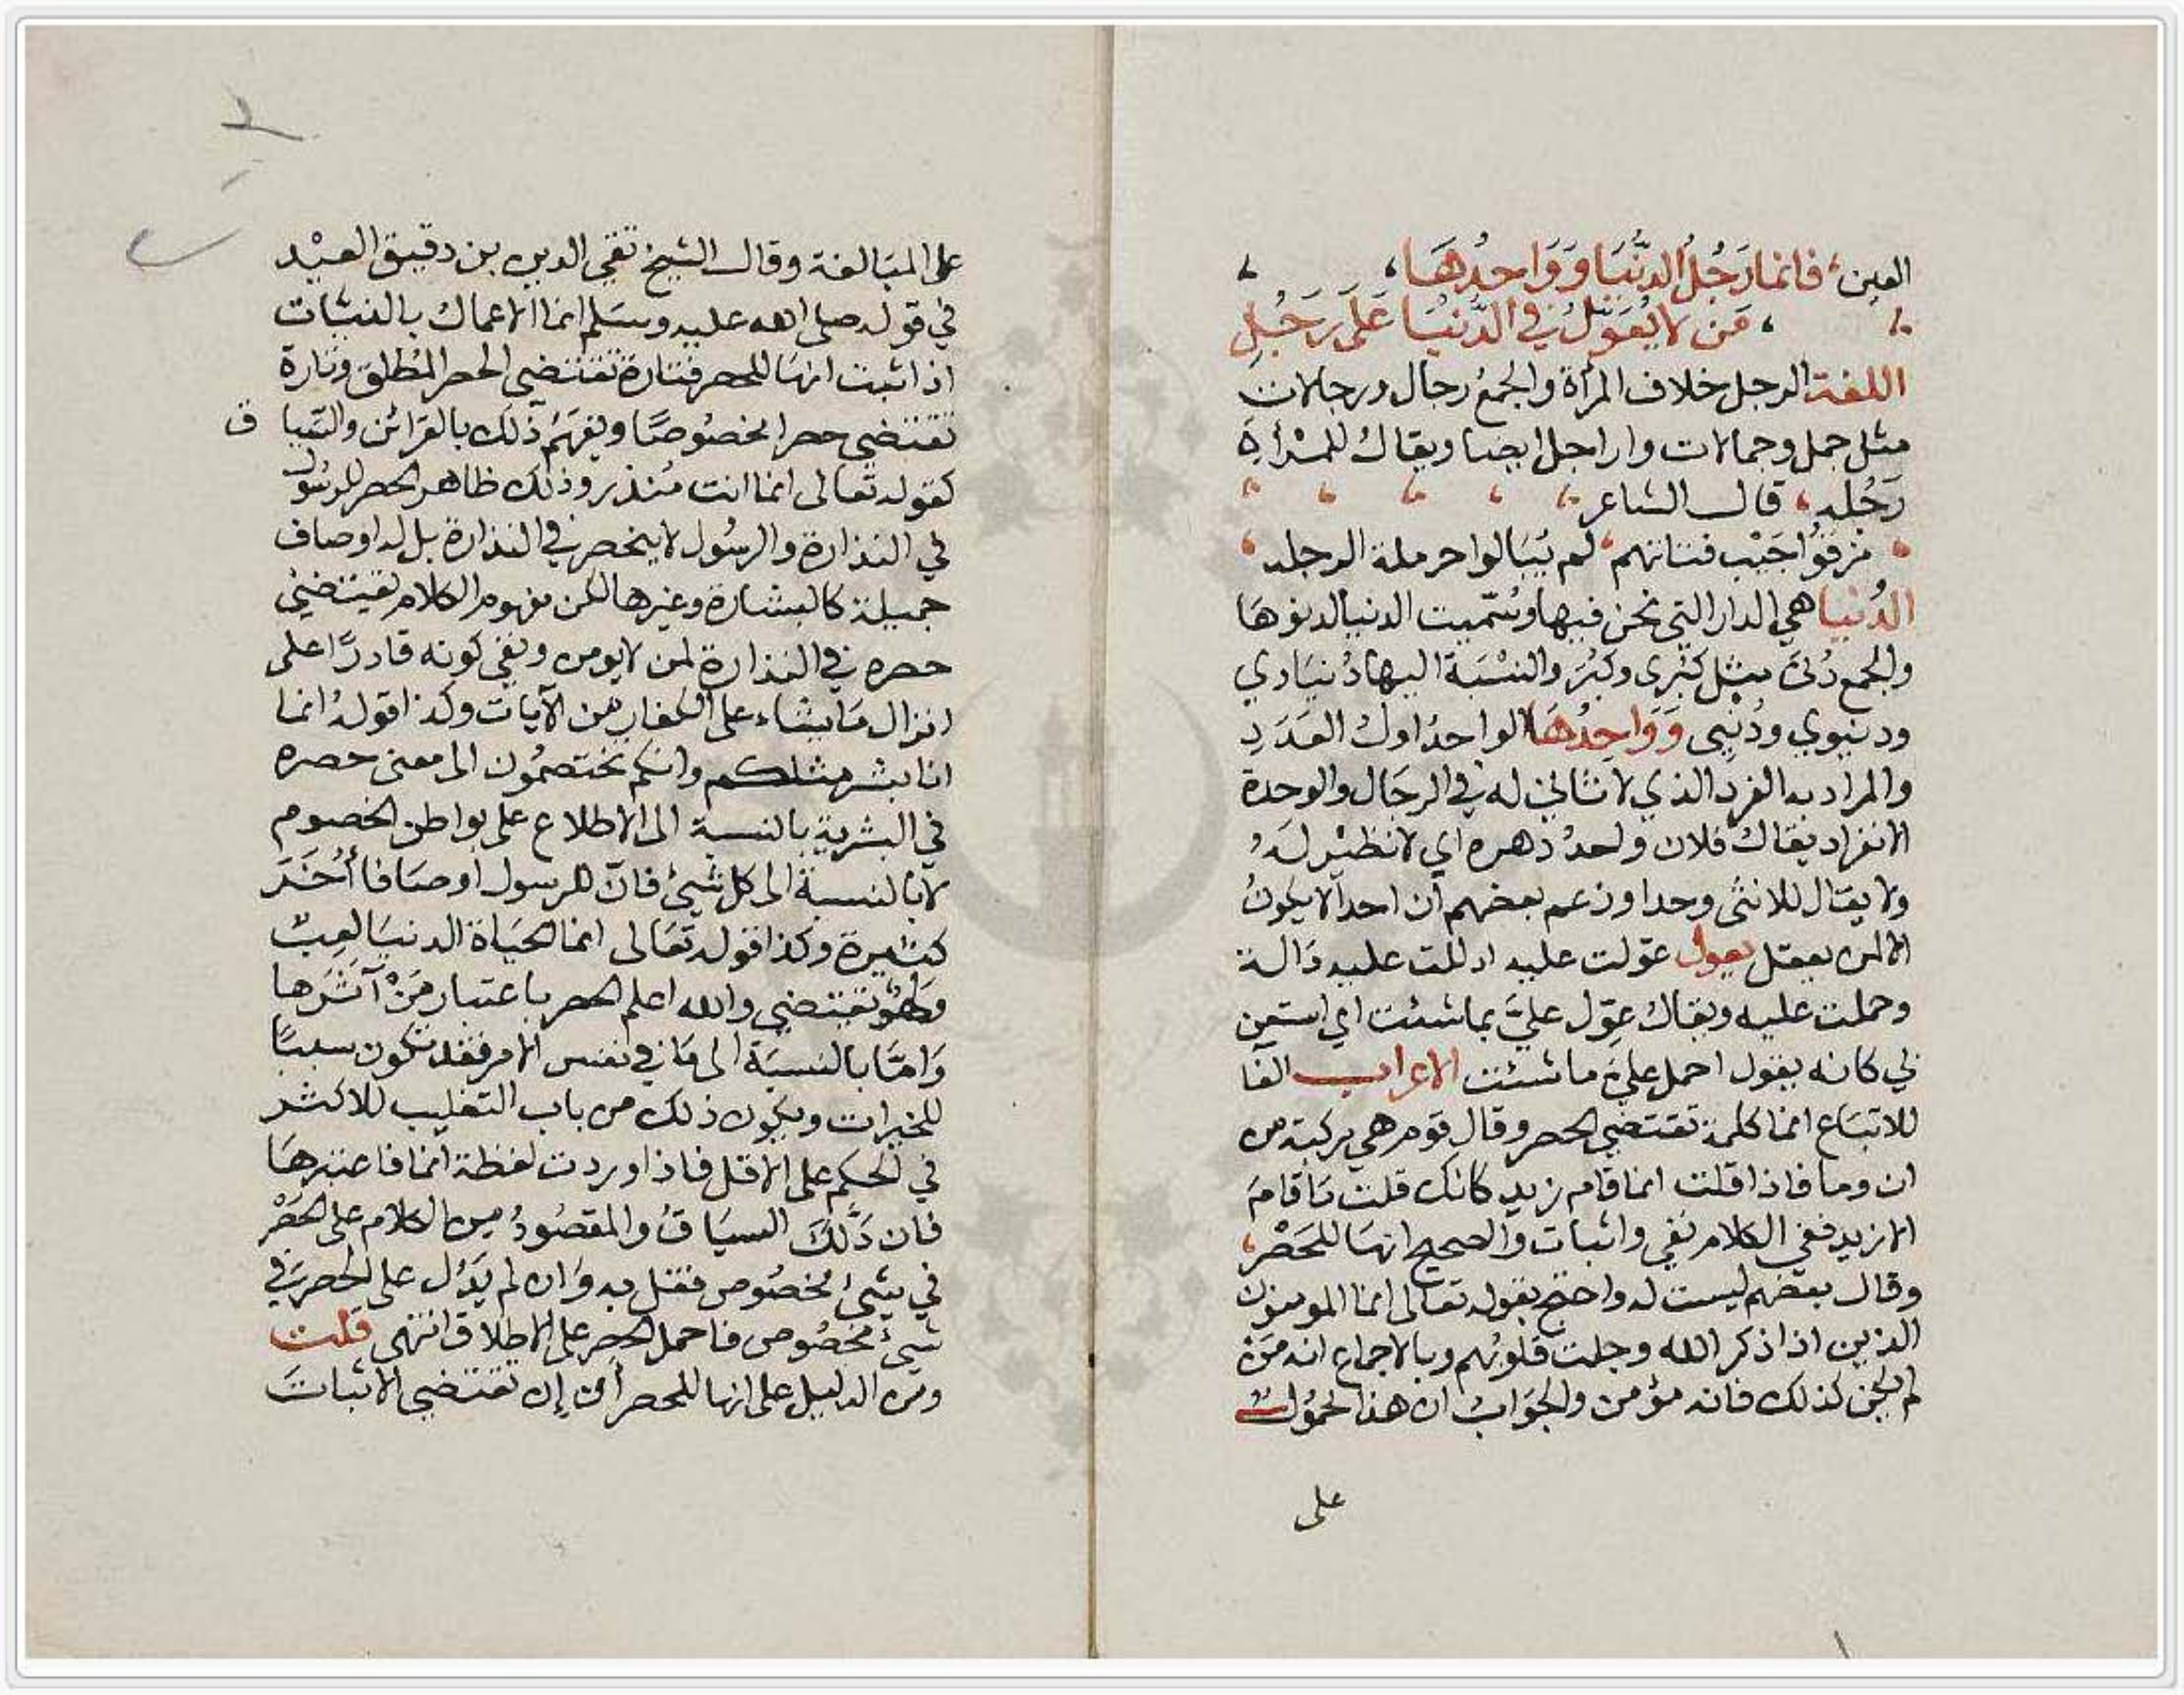 العين، فانما رَجُلُ الدُّنْيَا وَوَاحِدُهَا،
مَن لا يُعَوِّلُ في الدُّنيَا عَلَى رَجُلِ
اللغة الرجل خلاف المرأة والجمعُ رجال ورجالات
مثل جمل وجمالات واراجل ايضا ويقال للمرأة
رَجُله، قال الشاعر
مزقوا جَيْب فتاتهم، لم يُبَالوا حرملة الرجله
الدُنيا هي الدار التي نحن فيها وسُمّيت الدنيا لدنوهَا
والجمع دُنىً مثل كُبْرى وكُبَرَ والنسْبَة اليها دُنيَاوي
ودنيوي ودُنْيِى وَوَاحِدُهَا الواحدُ اول العَدَدِ
والمراد به الفرد الذي لا ثاني له في الرجَال والوحدة
الانفراد يقال فلان واحدُ دهره اي لا نظير لَهُ
ولا يقال للانثى وحدا وزعم بعضهم ان احدا لا يكونُ
الا لمن يعقل يعول عوّلت عليه ادللت عليه دَالة
وحملت عليه ويقال عوّل عليَّ بما شئت اي استعن
بي كانه يقول احمل عليَّ ما شئت الاعراب الفَا
للاتبَاع انما كلمة تقتضي الحصر وقال قوم هي مركبة من
ان وما فاذا قلت انما قام زيد كانك قلت مَا قامَ
الا زيد ففي الكلام نفي واثبات والصحيح انهَا للحَصْر،
وقال بعضهم ليست له واحتج بقوله تعالى انما المومنون
الذين اذا ذكر الله وجلت قلوبُهم وبالاجماع انه مَنْ
لم يكن كذلك فانه مؤمن والجوَابُ ان هذا محمُول
على
على المبَالغة وقال الشيخ تقي الدين بن دقيق العيْد
في قوله صلى الله عليه وسَلم انما الاعمال بالنيّات
اذا ثبت انهَا للحصر فتارة تقتضي الحصر المُطلق وتارة
تقتضي حصرا مخصُوصًا ويفهَمُ ذلك بالقرائن والسّيا ق
كقوله تعالى انما انت مُنذر وذلك ظاهر الحصر للرسُول
في النذارة والرسُول لا ينحصر في النذارة بل له اوصاف
جميلة كالبشارة وغيرها لكن مفهوم الكلام يقتضي
حصره في النذارة لمن لا يومن ونفي كونه قادرًا على
انزال مَا يشاء على الكفار من الآيات وكذا قولهُ انما
انا بشر مثلكم وانكم تختصمُون الى معنى حصره
في البشرية بالنسبة الى الاطلاع على بواطن الخصوم
لا بالنسبة الى كل شيئ فانّ للرسول اوصَافا أُخَرَ
كثيرة وكذا قوله تعَالى انما الحيَاة الدنيَا لعِبٌ
ولهوٌ تقتضي والله اعلم الحصر باعتبار مَنْ آثَرَها
وَامّا بالنسبَة الى مَا في نفس الامر فقد تكون سببًا
للخيرات ويكون ذلك من باب التغليب للاكثر
في الحكم على الاقل فاذا وردت لفظة انما فاعتبرهَا
فان دَلَّكَ السيَاقُ والمقصُودُ من الكلام على الحَصْر
في شيئ مخصُوص فقل به وَان لم يَدُل على الحصر في
شيئ مخصُوص فاحمل الحصر على الاطلاق انتهى قلت
ومن الدليل على انها للحصر أن إن تقتضي الاثبات